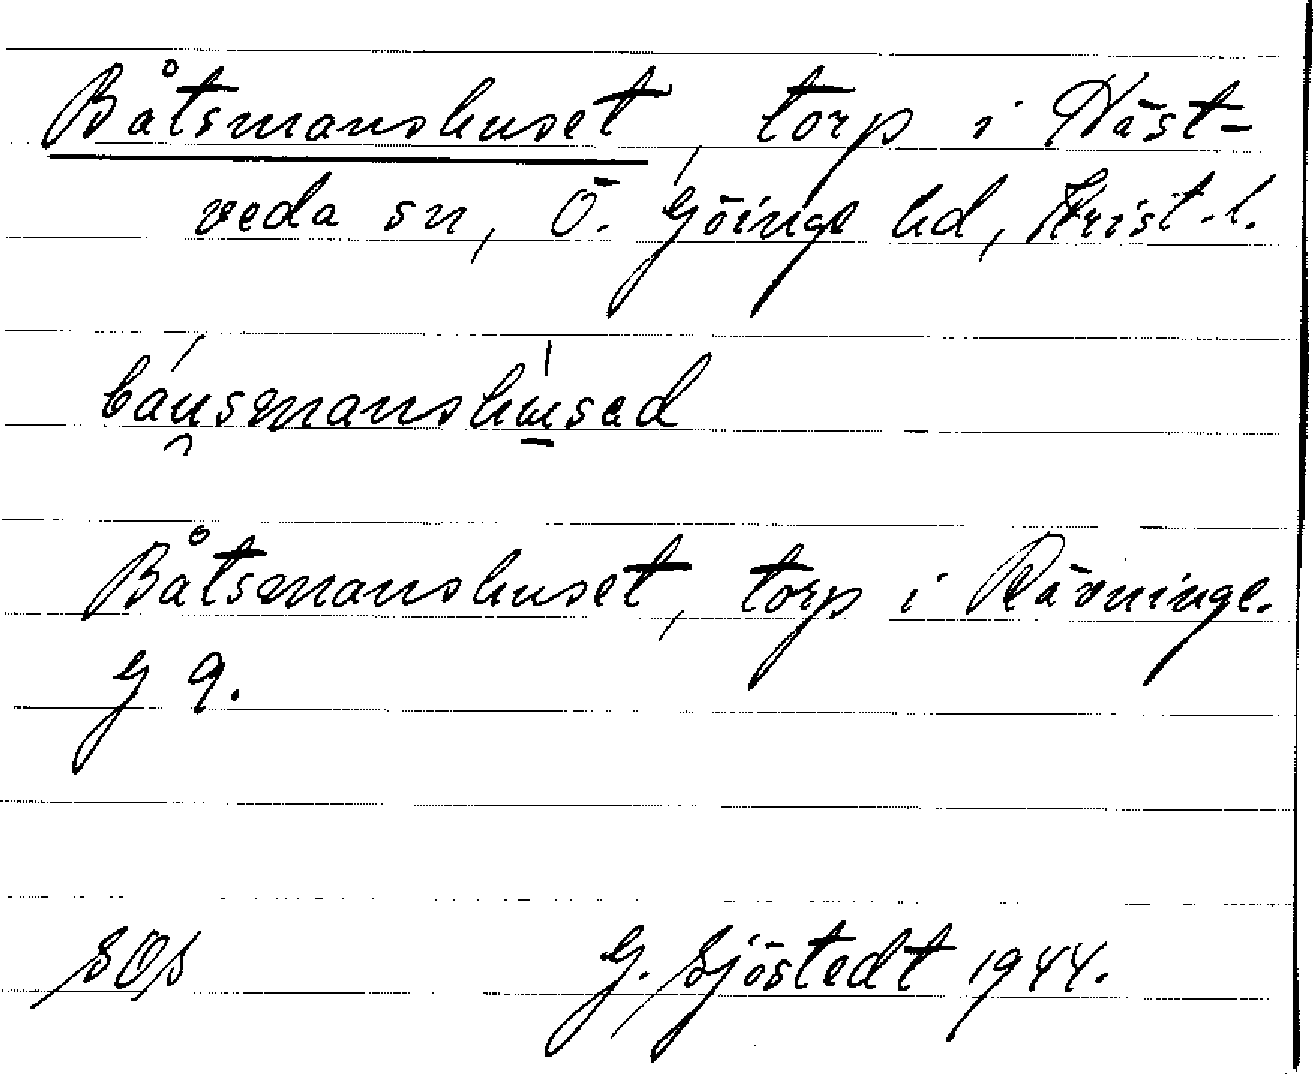 Båtsmanshuset, torp i Häst-
veda sn, Ö. Göinge hd, Krist.l.
Båtsmanshuset, torp i Rävninge.
G 9.
SOS G. Sjöstedt 1944.